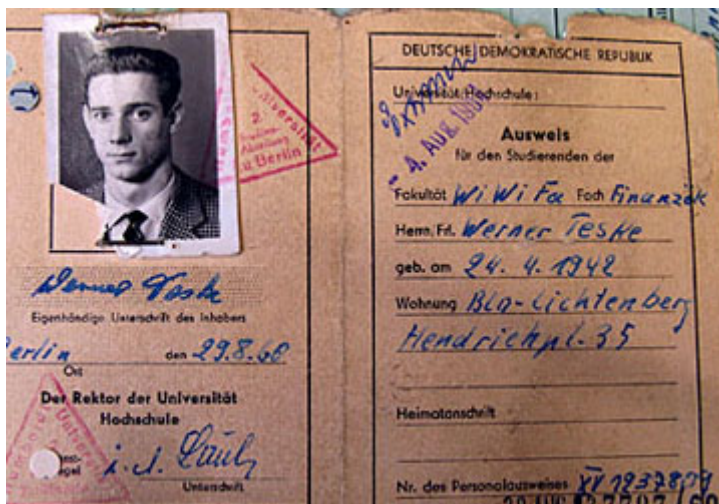 Universität
2.
Studien-
Abteilung
zu Berlin
Werner Teske
Eigenhändige Unterschrift des Inhabers
Berlin den 29.8.60
Ort
Der Rektor der Universität
Hochschule
i. A.
Unterschrift
DEUTSCHE DEMOKRATISCHE REPUBLIK
Universität/Hochschule:
Ausweis
für den Studierenden der
Fakultät WiWiFa Fach Finanzök
Herrn/Frl. Werner Teske
geb. am 24. 4. 1942
Wohnung Bln-Lichtenberg
Hendrichpl. 35
Heimatanschrift
Nr. des Personalausweises XV 1237809